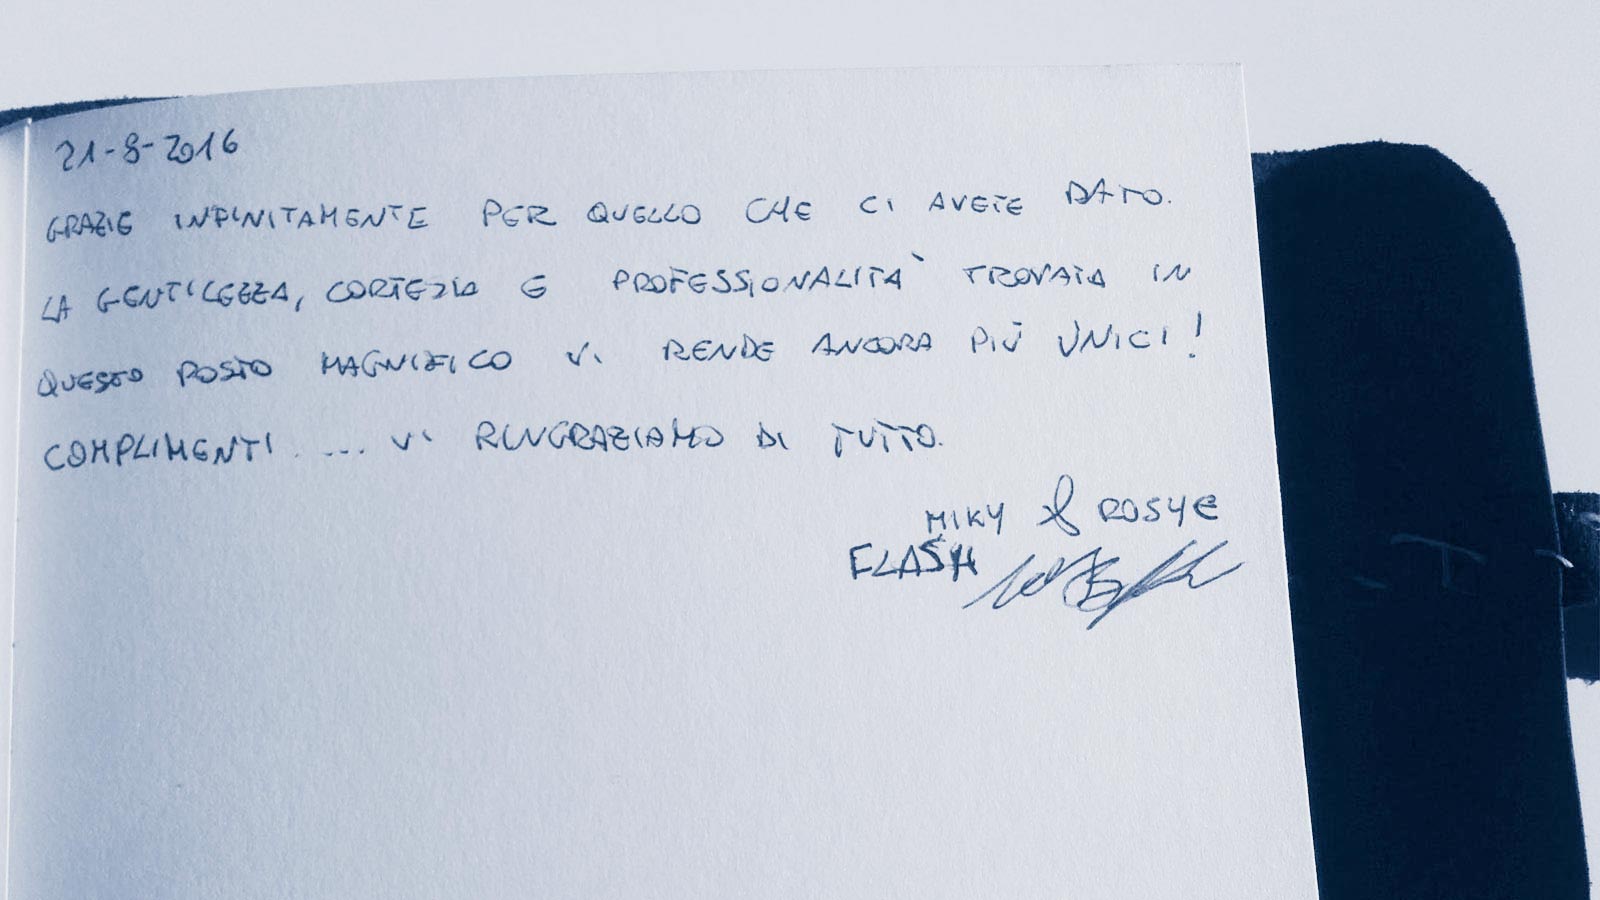 21-8-2016
GRAZIE INFINITAMENTE PER QUELLO CHE CI AVETE DATO.
LA GENTILEZZA, CORTESIA E PROFESSIONALITÀ TROVATA IN
QUESTO POSTO MAGNIFICO VI RENDE ANCORA PIÙ UNICI!
COMPLIMENTI.... VI RINGRAZIAMO DI TUTTO.
MIKY & ROSYE
FLASH